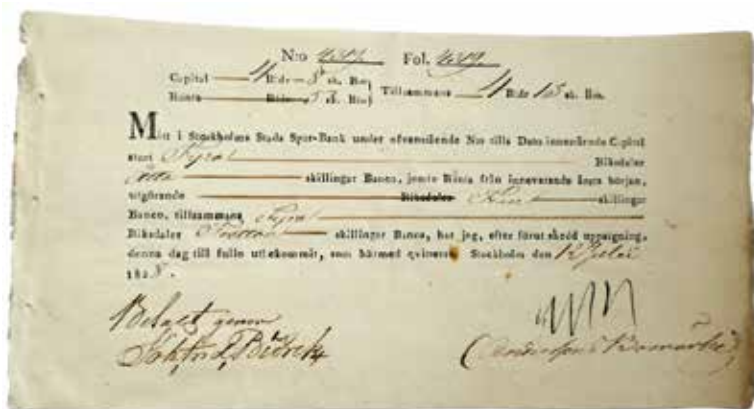 N:o 4319. Fol. 4319.
Capital 4 Rdr 8 sk. Bco
Ränta Rdr 5 sk. Bco Tillsammans 4 Rdr 13 sk. Bco.
Mitt i Stockholms Stads Spar-Bank under ofvanstående N:o till Dato innestående Capital
stort Fyra Riksdaler
åtta skillingar Banco, jemte Ränta från innevarande årets början,
utgörande Riksdaler Fem skillingar
Banco, tillsammans Fyra
Riksdaler Tretton skillingar Banco, har jag, efter förut skedd uppsägning,
denna dag till fullo utbekommit, som härmed qvitteras. Stockholm den 12 Julii
1828.
Betalt genom